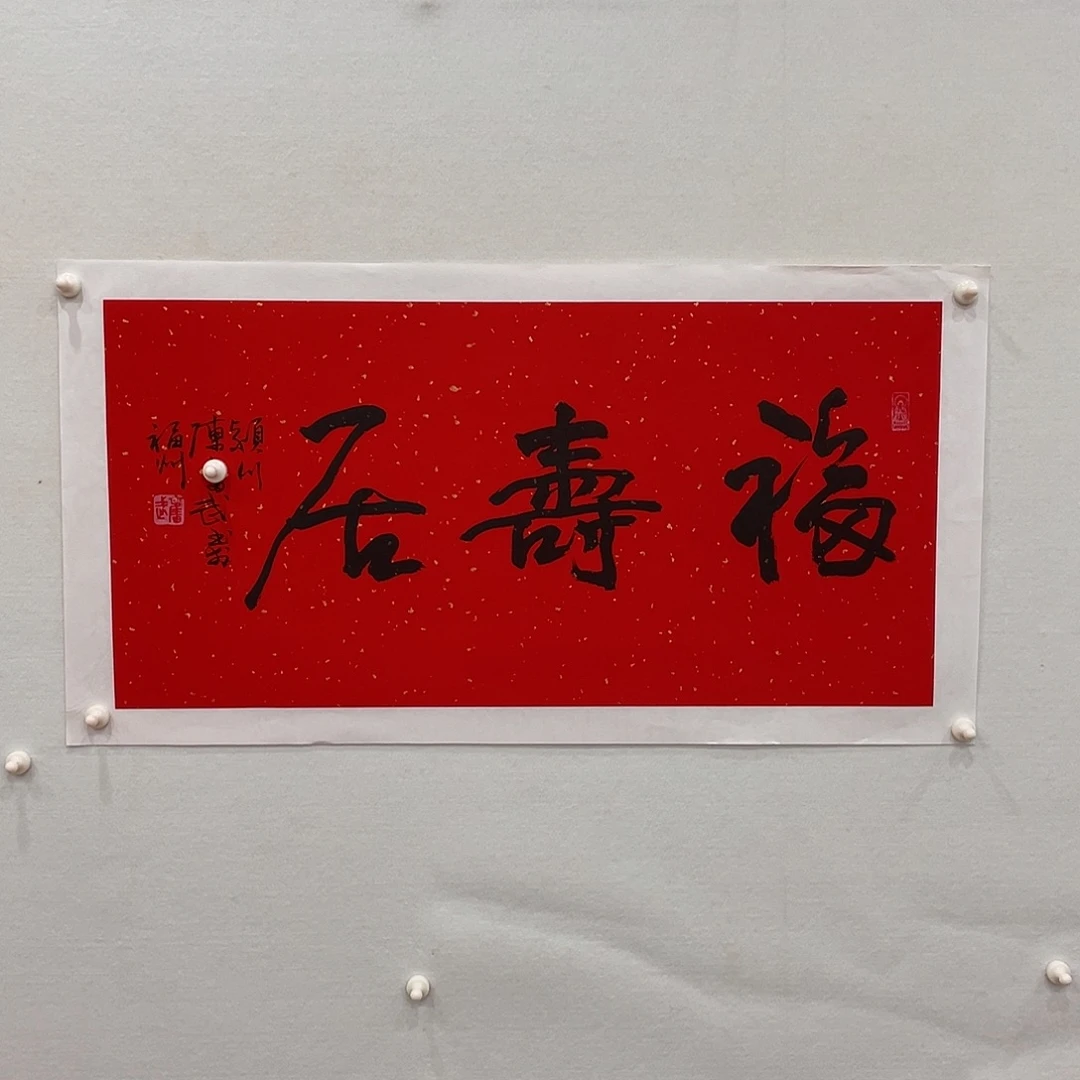 福壽居
潁川
陳
武書
福州